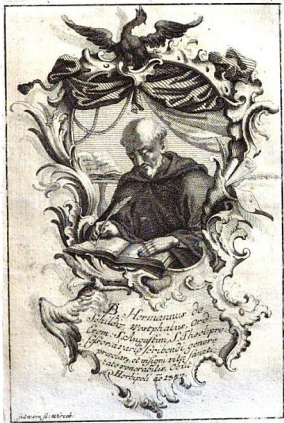 B. Hermannus de
Schildiz, Westphalus, Ord.
Erem. S. Augustini, S. Theol. pro-
fessor, varii scribendi genere
proclarus, et insigni vitæ sancti-
tate venerabilis. Obiit
Herbipoli aº 1357.